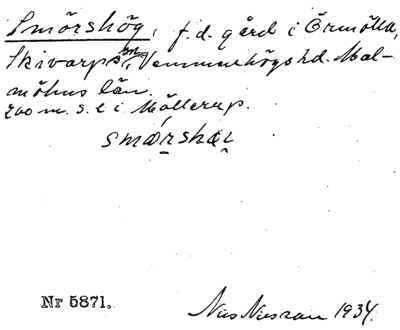 Smörshög, f.d. gård i Örmölla,
Skivarps sn, Vemmenhögs hd. Mal-
möhus län.
200 m. s. e i Möllerup.
smö́rshøi
Nr 5871.
Nils Nilsson 1934.